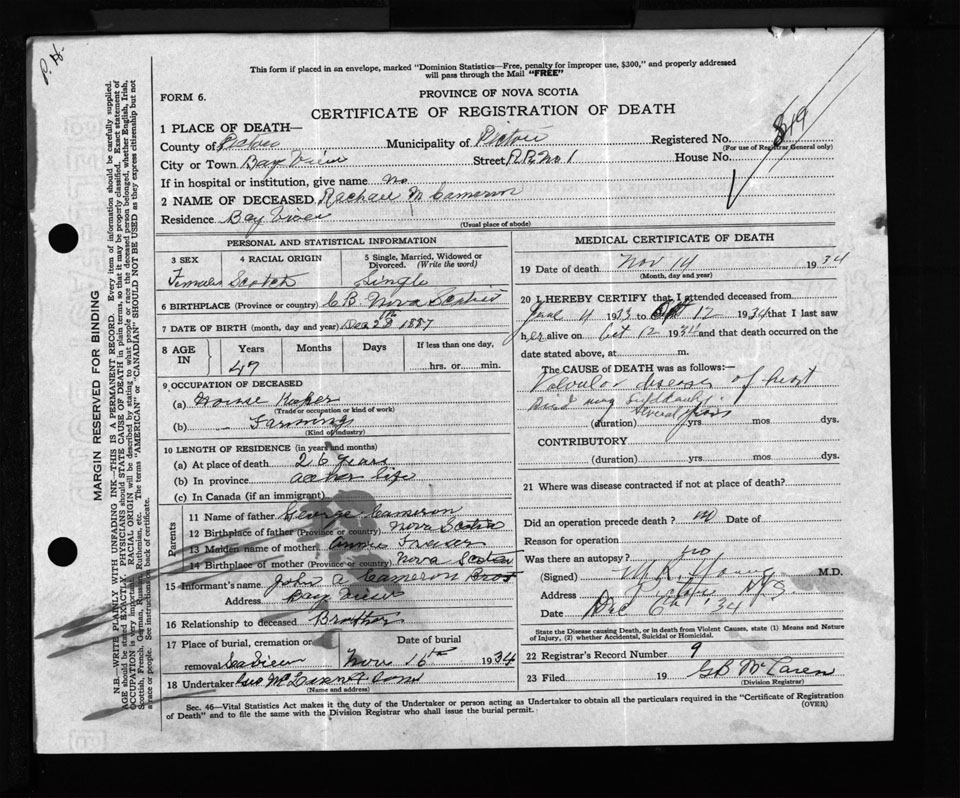 P. H.
This form if placed in an envelope, marked "Dominion Statistics—Free, penalty for improper use, $300," and properly addressed
will pass through the Mail "FREE"
FORM 6.
PROVINCE OF NOVA SCOTIA
CERTIFICATE OF REGISTRATION OF DEATH
819
1 PLACE OF DEATH—
County of Pictou Municipality of Pictou Registered No.
(For use of Registrar General only)
City or Town Bay View Street R.R. No 1 House No.
If in hospital or institution, give name no
2 NAME OF DECEASED Rachael M Cameron
Residence Bay View
(Usual place of abode)
PERSONAL AND STATISTICAL INFORMATION
3 SEX 4 RACIAL ORIGIN 5 Single, Married, Widowed or Divorced. (Write the word)
Female Scotch Single
6 BIRTHPLACE (Province or country) C.B. Nova Scotia
7 DATE OF BIRTH (month, day and year) Dec 28th 1887
8 AGE IN Years Months Days If less than one day,
47 hrs. or min.
9 OCCUPATION OF DECEASED
(a) House Keeper
(Trade or occupation or kind of work)
(b) Farming
(Kind of industry)
10 LENGTH OF RESIDENCE (in years and months)
(a) At place of death 26 years
(b) In province all her life
(c) In Canada (if an immigrant)
Parents
11 Name of father George Cameron
12 Birthplace of father (Province or country) Nova Scotia
13 Maiden name of mother Annie
14 Birthplace of mother (Province or country) Nova Scotia
15 Informant's name John A Cameron
Address Bay View
16 Relationship to deceased Brother
17 Place of burial, cremation or removal Date of burial
Seaview Nov 16th 1934
18 Undertaker
(Name and address)
MEDICAL CERTIFICATE OF DEATH
19 Date of death Nov 14 1934
(Month, day and year)
20 I HEREBY CERTIFY that I attended deceased from
June 4 1933 to Oct 12 1934 that I last saw
her alive on Oct 12 1934 and that death occurred on the
date stated above, at m.
The CAUSE OF DEATH was as follows:—
Valvular disease of heart
(duration) several years yrs mos dys.
CONTRIBUTORY
(duration) yrs. mos dys.
21 Where was disease contracted if not at place of death?
Did an operation precede death? no Date of
Reason for operation
Was there an autopsy? no
(Signed) M.D.
Address N.S.
Date Dec 6th '34
State the Disease causing Death, or in Death from Violent Causes, state (1) Means and Nature
of Injury, (2) whether Accidental, Suicidal or Homicidal.
22 Registrar's Record Number 9
23 Filed 19 G B McCaren
(Division Registrar)
Sec. 46—Vital Statistics Act makes it the duty of the Undertaker or person acting as Undertaker to obtain all the particulars required in the "Certificate of Registration
of Death" and to file the same with the Division Registrar who shall issue the burial permit.
(OVER)
MARGIN RESERVED FOR BINDING
N.B.—WRITE PLAINLY WITH UNFADING INK—THIS IS A PERMANENT RECORD. Every item of information should be carefully supplied.
AGE should be stated EXACTLY. PHYSICIANS should STATE CAUSE OF DEATH in plain terms, so that it may be properly classified. Exact statement of
OCCUPATION is very important. RACIAL ORIGIN will be described by stating to what people or race the deceased person belonged, whether English, Irish,
Scottish, French, German, Russian, Ruthenian, etc. The terms "AMERICAN" or "CANADIAN" SHOULD NOT BE USED as they express citizenship but not
a race or people. See instructions on back of certificate.